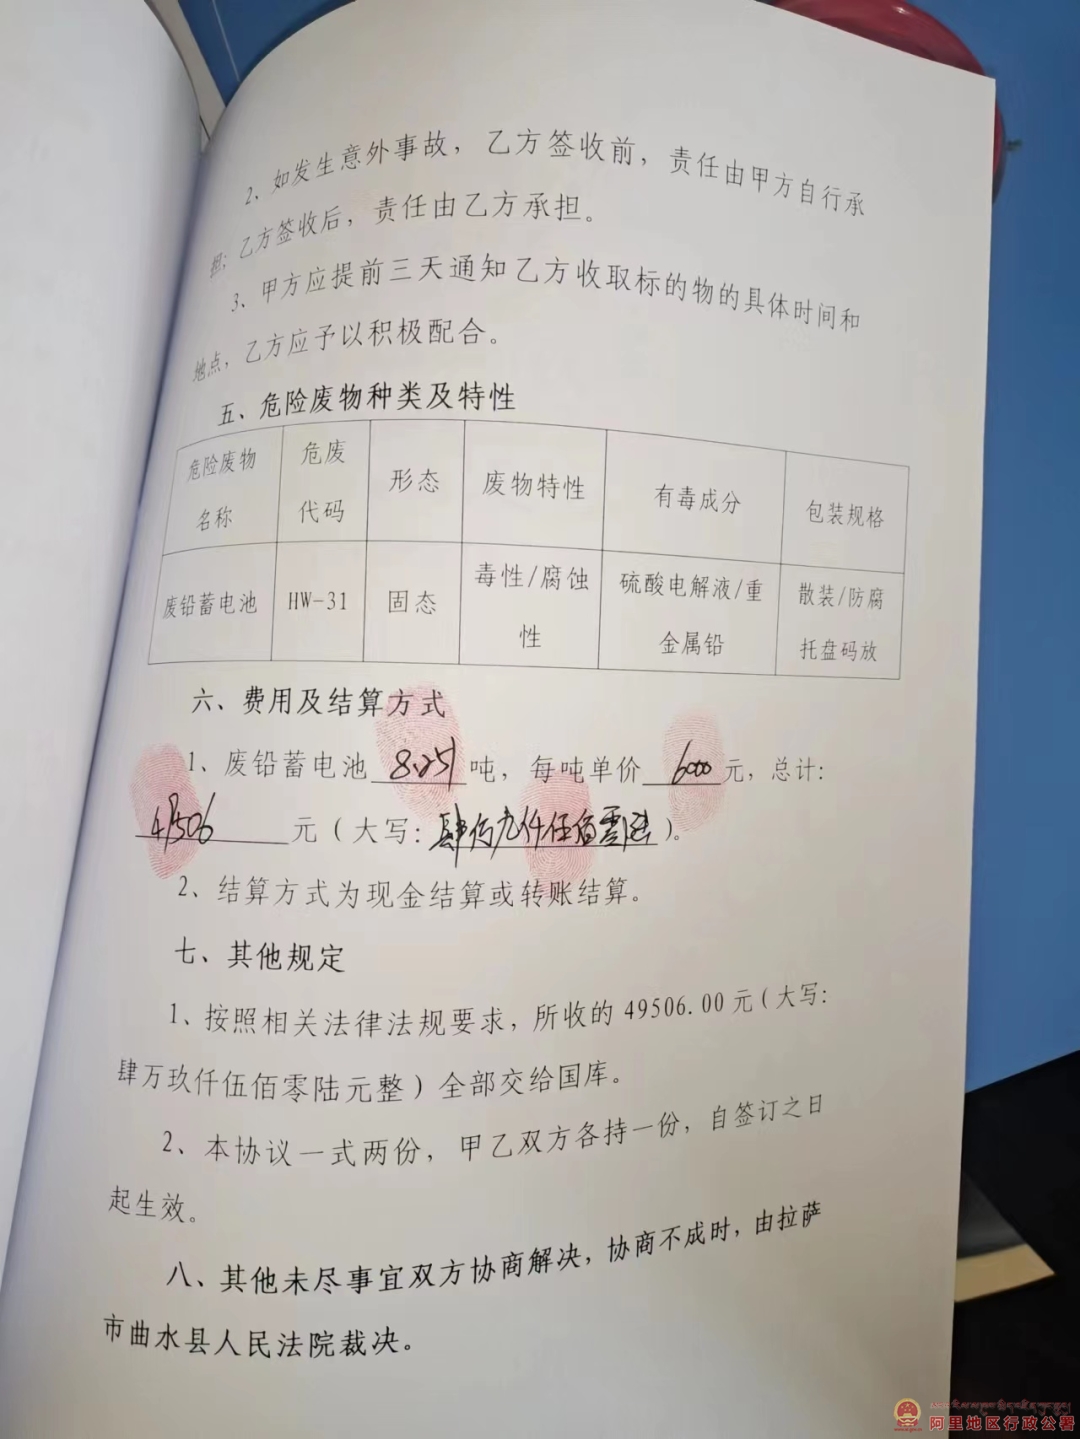 2、如发生意外事故，乙方签收前，责任由甲方自行承
担；乙方签收后，责任由乙方承担。
3、甲方应提前三天通知乙方收取标的物的具体时间和
地点，乙方应予以积极配合。
五、危险废物种类及特性
危险废物名称 危废代码 形态 废物特性 有毒成分 包装规格
废铅蓄电池 HW-31 固态 毒性/腐蚀性 硫酸电解液/重金属铅 散装/防腐托盘码放
六、费用及结算方式
1、废铅蓄电池 8.251 吨，每吨单价 6000 元，总计：
49506 元（大写：肆万九仟伍佰零陆）。
2、结算方式为现金结算或转账结算。
七、其他规定
1、按照相关法律法规要求，所收的 49506.00 元（大写：
肆万玖仟伍佰零陆元整）全部交给国库。
2、本协议一式两份，甲乙双方各持一份，自签订之日
起生效。
八、其他未尽事宜双方协商解决，协商不成时，由拉萨
市曲水县人民法院裁决。
阿里地区行政公署